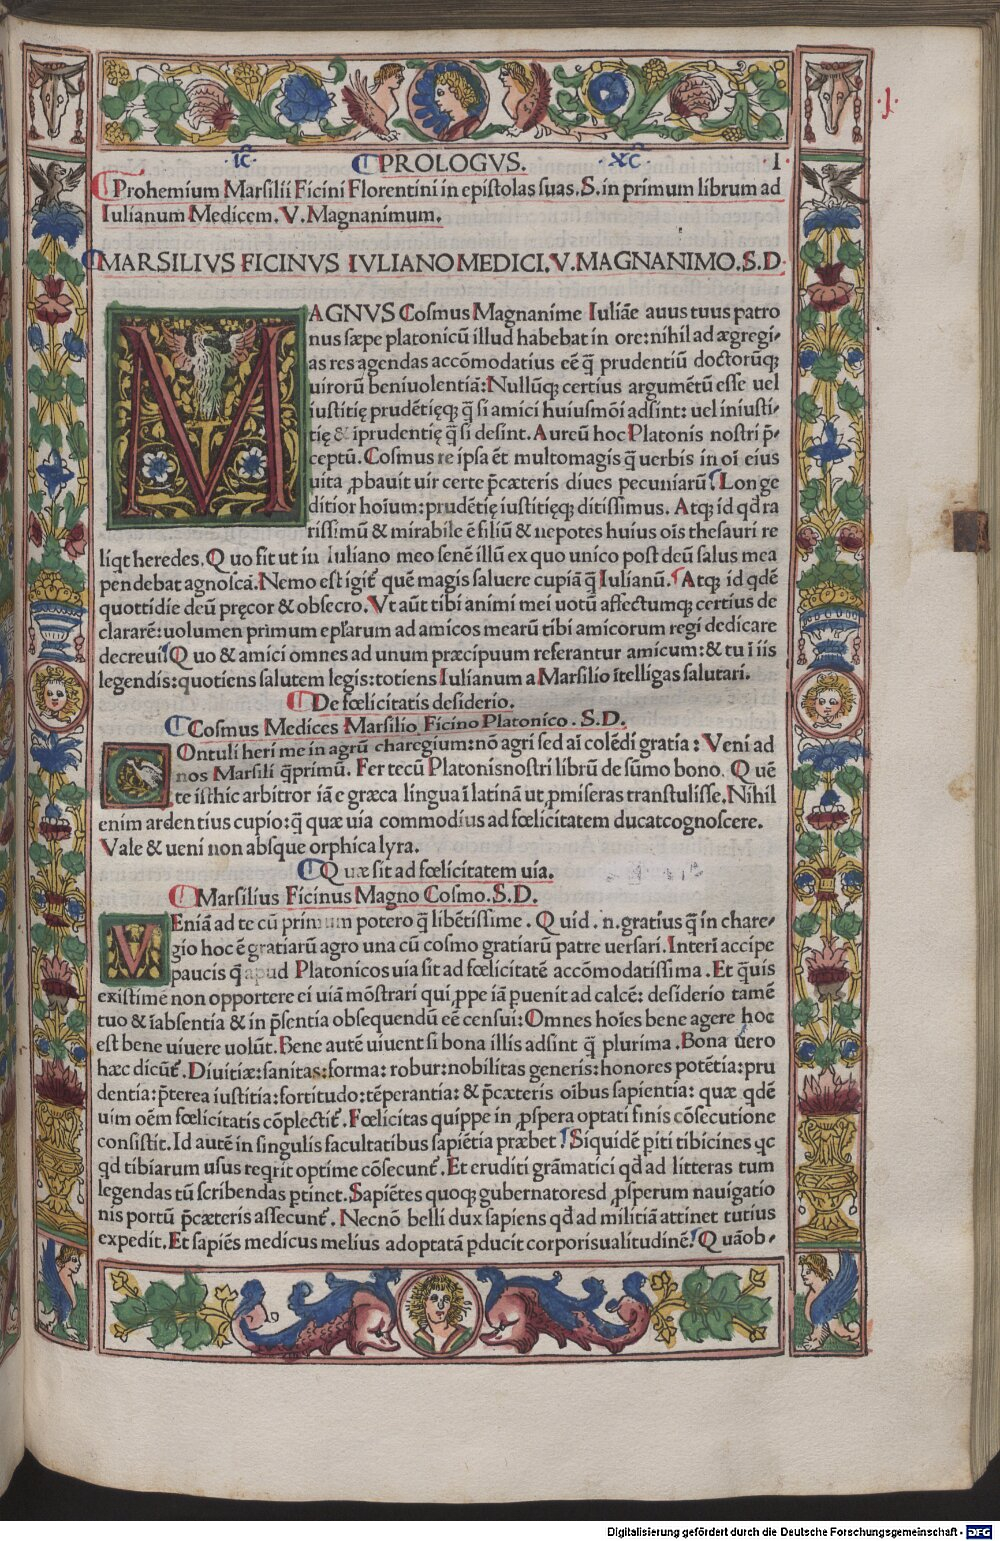 .1.
PROLOGVS. I
Prohemium Marsilii Ficini Florentini in epistolas suas. S. in primum librum ad
Iulianum Medicem. V. Magnanimum.
MARSILIVS FICINVS IVLIANO MEDICI. V. MAGNANIMO. S. D
MAGNVS Cosmus Magnanime Iuliãe auus tuus patro
nus sæpe platonicũ illud habebat in ore: nihil ad ægregi-
as res agendas accõmodatius eẽ q̃ prudentiũ doctorũq;
uirorũ beniuolentiã: Nullũq; certius argumẽtũ esse uel
iustitię prudẽtięq; q̃ si amici huiusmõi adsint: uel iniusti-
tię & iprudentię q̃ si desint. Aureũ hoc Platonis nostri p̃-
ceptũ. Cosmus re ipsa ẽt multomagis q̃ uerbis in oĩ eius
uita ꝓbauit uir certe p̃cæteris diues pecuniarũ: Longe
ditior hoium: prudẽtię iustitięq; ditissimus. Atq; id qd̃ ra
rissimũ & mirabile ẽ filiũ & nepotes huius oĩs thesauri re
liqt heredes. Quo fit ut in Iuliano meo senẽ illũ ex quo unico post deũ salus mea
pendebat agnoscã. Nemo est igit̃ quẽ magis saluere cupiã q̃ Iulianũ. Atq; id qdẽ
quottidie deũ pręcor & obsecro. Vt aũt tibi animi mei uotũ affectumq; certius de
clararẽ: uolumen primum epl̃arum ad amicos mearũ tibi amicorum regi dedicare
decreui: Quo & amici omnes ad unum præcipuum referantur amicum: & tu ĩ iis
legendis: quotiens salutem legis: totiens Iulianum a Marsilio ĩtelligas salutari.
De fœlicitatis desiderio.
Cosmus Medices Marsilio Ficino Platonico. S. D.
COntuli heri me in agrũ charegium: nõ agri sed aĩ colẽdi gratia: Veni ad
nos Marsili q̃primũ. Fer tecũ Platonis nostri librũ de sũmo bono. Quẽ
te isthic arbitror iã e græca lingua ĩ latinã ut ꝓmiseras transtulisse. Nihil
enim ardentius cupio: q̃ quæ uia commodius ad fœlicitatem ducat cognoscere.
Vale & ueni non absque orphica lyra.
Quæ sit ad fœlicitatem uia.
Marsilius Ficinus Magno Cosmo. S. D.
VEniã ad te cũ primum potero q̃ libẽtissime. Quid .n. gratius q̃ in chare-
gio hoc ẽ gratiarũ agro una cũ cosmo gratiarũ patre uersari. Interĩ accipe
paucis q̃ apud Platonicos uia sit ad fœlicitatẽ accõmodatissima. Et q̃uis
existimẽ non opportere ei uiã mõstrari qui ꝓpe iã puenit ad calcẽ: desiderio tamẽ
tuo & ĩ absentia & in p̃sentia obsequendũ eẽ censui: Omnes hoĩes bene agere hoc
est bene uiuere uolũt. Bene autẽ uiuent si bona illis adsint q̃ plurima. Bona uero
hæc dicũt. Diuitiæ: sanitas: forma: robur: nobilitas generis: honores potẽtia: pru
dentia: p̃terea iustitia: fortitudo: tẽperantia: & p̃cæteris oĩbus sapientia: quæ qdẽ
uim oẽm fœlicitatis cõplectit̃. Fœlicitas quippe in ꝓspera optati finis cõsecutione
consistit. Id autẽ in singulis facultatibus sapiẽtia præbet: Siquidẽ piti tibicines qc
qd tibiarum usus reqrit optime cõsecunt̃. Et eruditi grãmatici qd ad litteras tum
legendas tũ scribendas ptinet. Sapiẽtes quoq; gubernatores d ꝓsperum nauigatio
nis portũ p̃cæteris assecunt̃. Necnõ belli dux sapiens qd ad militiã attinet tutius
expedit. Et sapiẽs medicus melius adoptatã pducit corporis ualitudinẽ. Quãob-
Digitalisierung gefördert durch die Deutsche Forschungsgemeinschaft - DFG